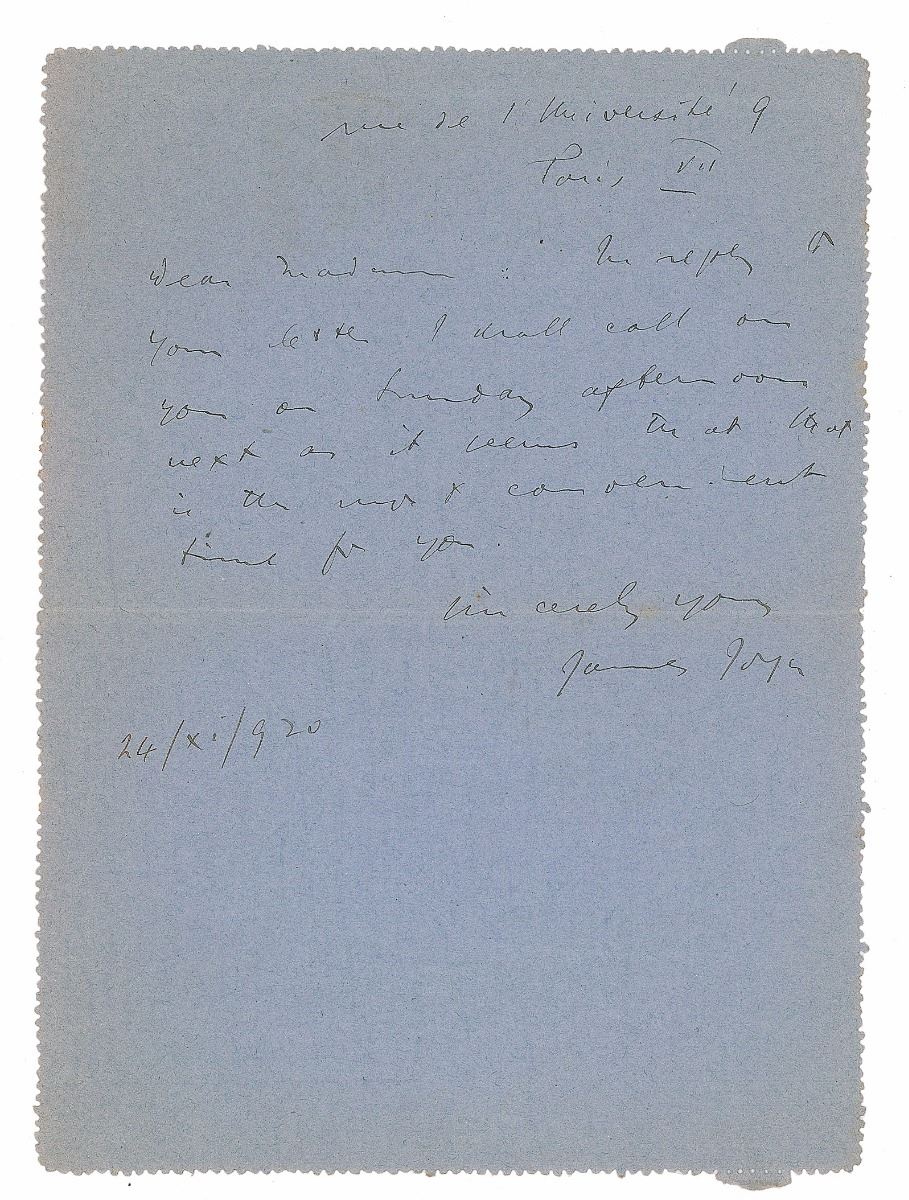 rue de l'Université 9
Paris VII
Dear Madam : In reply to
your letter I shall call on
you on Sunday afternoon
next as it seems that that
is the most convenient
time for you.
Sincerely yours
James Joyce
24/xi/920